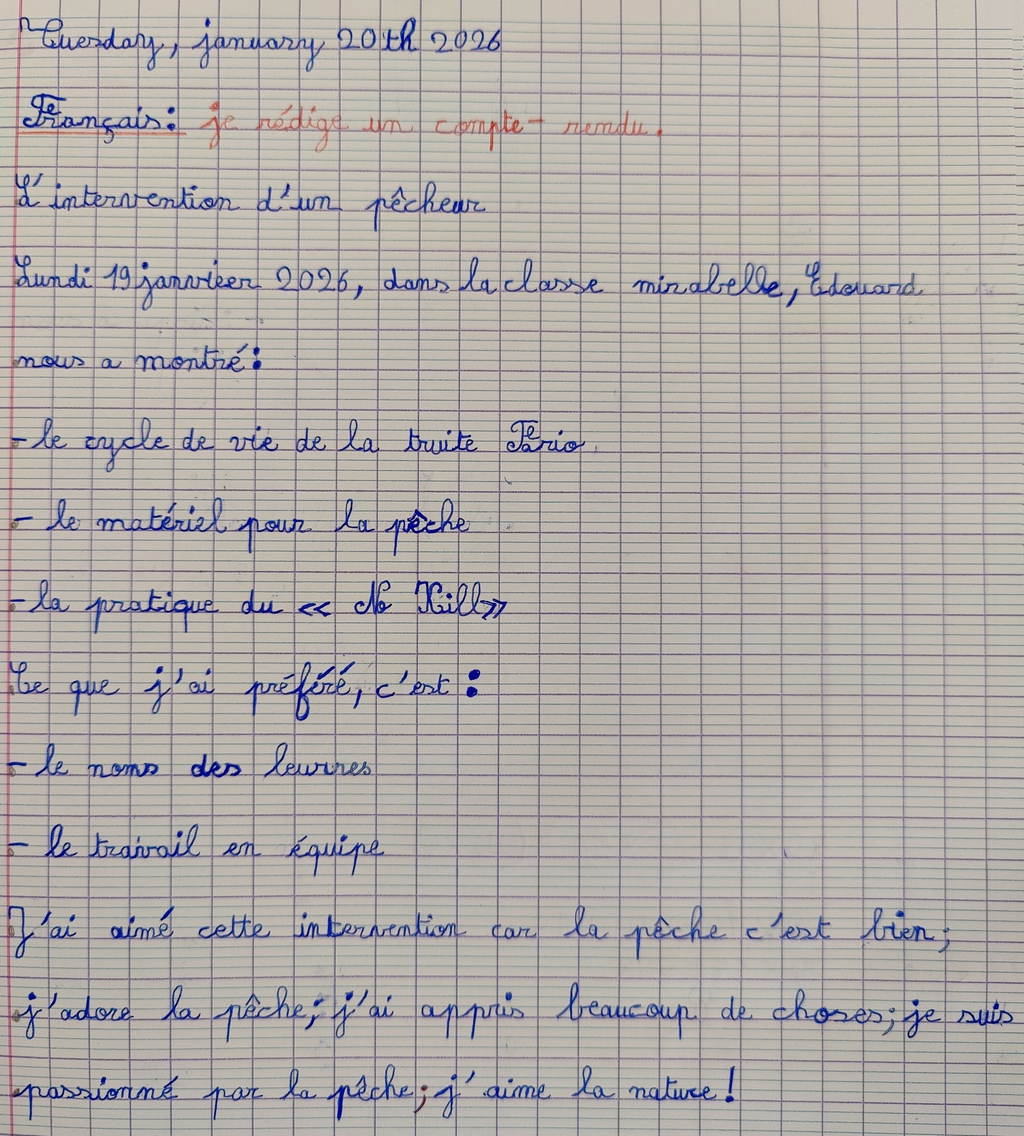 Tuesday, january 20th 2026
Français: je rédige un compte-rendu.
L'intervention d'un pêcheur
Lundi 19 janvier 2026, dans la classe mirabelle, Edouard
nous a montré:
- le cycle de vie de la truite Fario
- le matériel pour la pêche
- la pratique du « No Kill»
Ce que j'ai préféré, c'est :
- le noms des leurres
- le travail en équipe
J'ai aimé cette intervention car la pêche c'est bien;
j'adore la pêche; j'ai appris beaucoup de choses; je suis
passionné par la pêche; j'aime la nature!